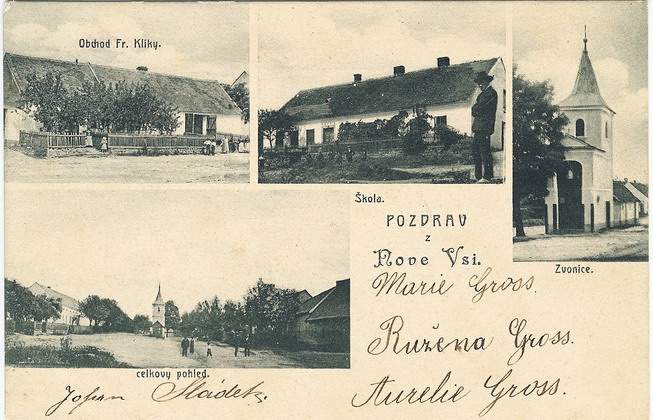 Obchod Fr. Kliky.
Škola.
Zvonice.
POZDRAV
z
Nové Vsi.
Marie Gross.
Ružena Gross.
Aurelie Gross.
celkový pohled.
Sládek.